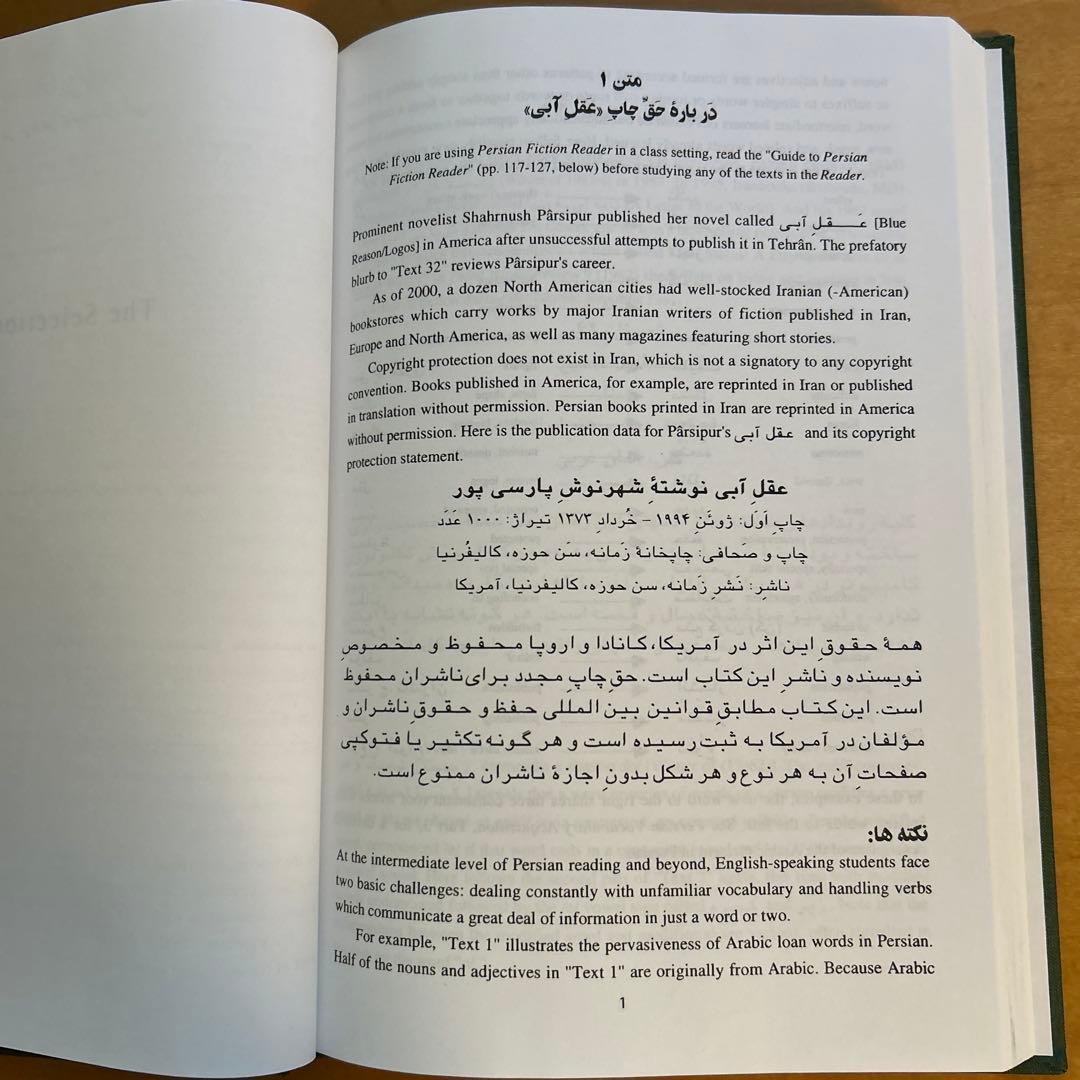 متن ۱
دَربارهٔ حَقِّ چاپِ «عَقلِ آبی»
Note: If you are using Persian Fiction Reader in a class setting, read the "Guide to Persian
Fiction Reader" (pp. 117-127, below) before studying any of the texts in the Reader.
Prominent novelist Shahrnush Pârsipur published her novel called عَـــقلِ آبی [Blue
Reason/Logos] in America after unsuccessful attempts to publish it in Tehrân. The prefatory
blurb to "Text 32" reviews Pârsipur's career.
As of 2000, a dozen North American cities had well-stocked Iranian (-American)
bookstores which carry works by major Iranian writers of fiction published in Iran,
Europe and North America, as well as many magazines featuring short stories.
Copyright protection does not exist in Iran, which is not a signatory to any copyright
convention. Books published in America, for example, are reprinted in Iran or published
in translation without permission. Persian books printed in Iran are reprinted in America
without permission. Here is the publication data for Pârsipur's عقل آبی and its copyright
protection statement.
عقلِ آبی نوشتهٔ شهرنوشِ پارسی پور
چاپِ اَوَل: ژوئَنِ ۱۹۹۴ - خُردادِ ۱۳۷۳ تیراژ: ۱۰۰۰ عَدَد
چاپ و صَحافی: چاپخانهٔ زَمانه، سَن حوزه، کالیفُرنیا
ناشِر: نَشرِ زَمانه، سن حوزه، کالیفرنیا، آمریکا
همهٔ حقوقِ این اثر در آمریکا، کانادا و اروپا محفوظ و مخصوصِ
نویسنده و ناشرِ این کتاب است. حقِ چاپِ مجدد برای ناشران محفوظ
است. این کتاب مطابقِ قوانین بین المللی حفظ و حقوقِ ناشران و
مؤلفان در آمریکا به ثبت رسیده است و هر گونه تکثیر یا فتوکپی
صفحاتِ آن به هر نوع و هر شکل بدونِ اجازهٔ ناشران ممنوع است.
نکته ها:
At the intermediate level of Persian reading and beyond, English-speaking students face
two basic challenges: dealing constantly with unfamiliar vocabulary and handling verbs
which communicate a great deal of information in just a word or two.
For example, "Text 1" illustrates the pervasiveness of Arabic loan words in Persian.
Half of the nouns and adjectives in "Text 1" are originally from Arabic. Because Arabic
1